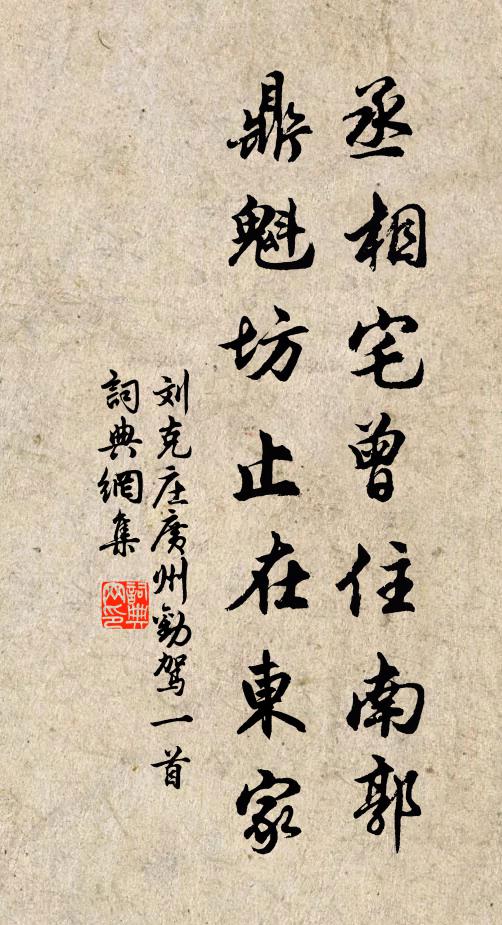 丞相宅曾住南郭
鼎魁坊止在東家
刘克庄廣州勸駕一首
詞典網集
詞典
网印